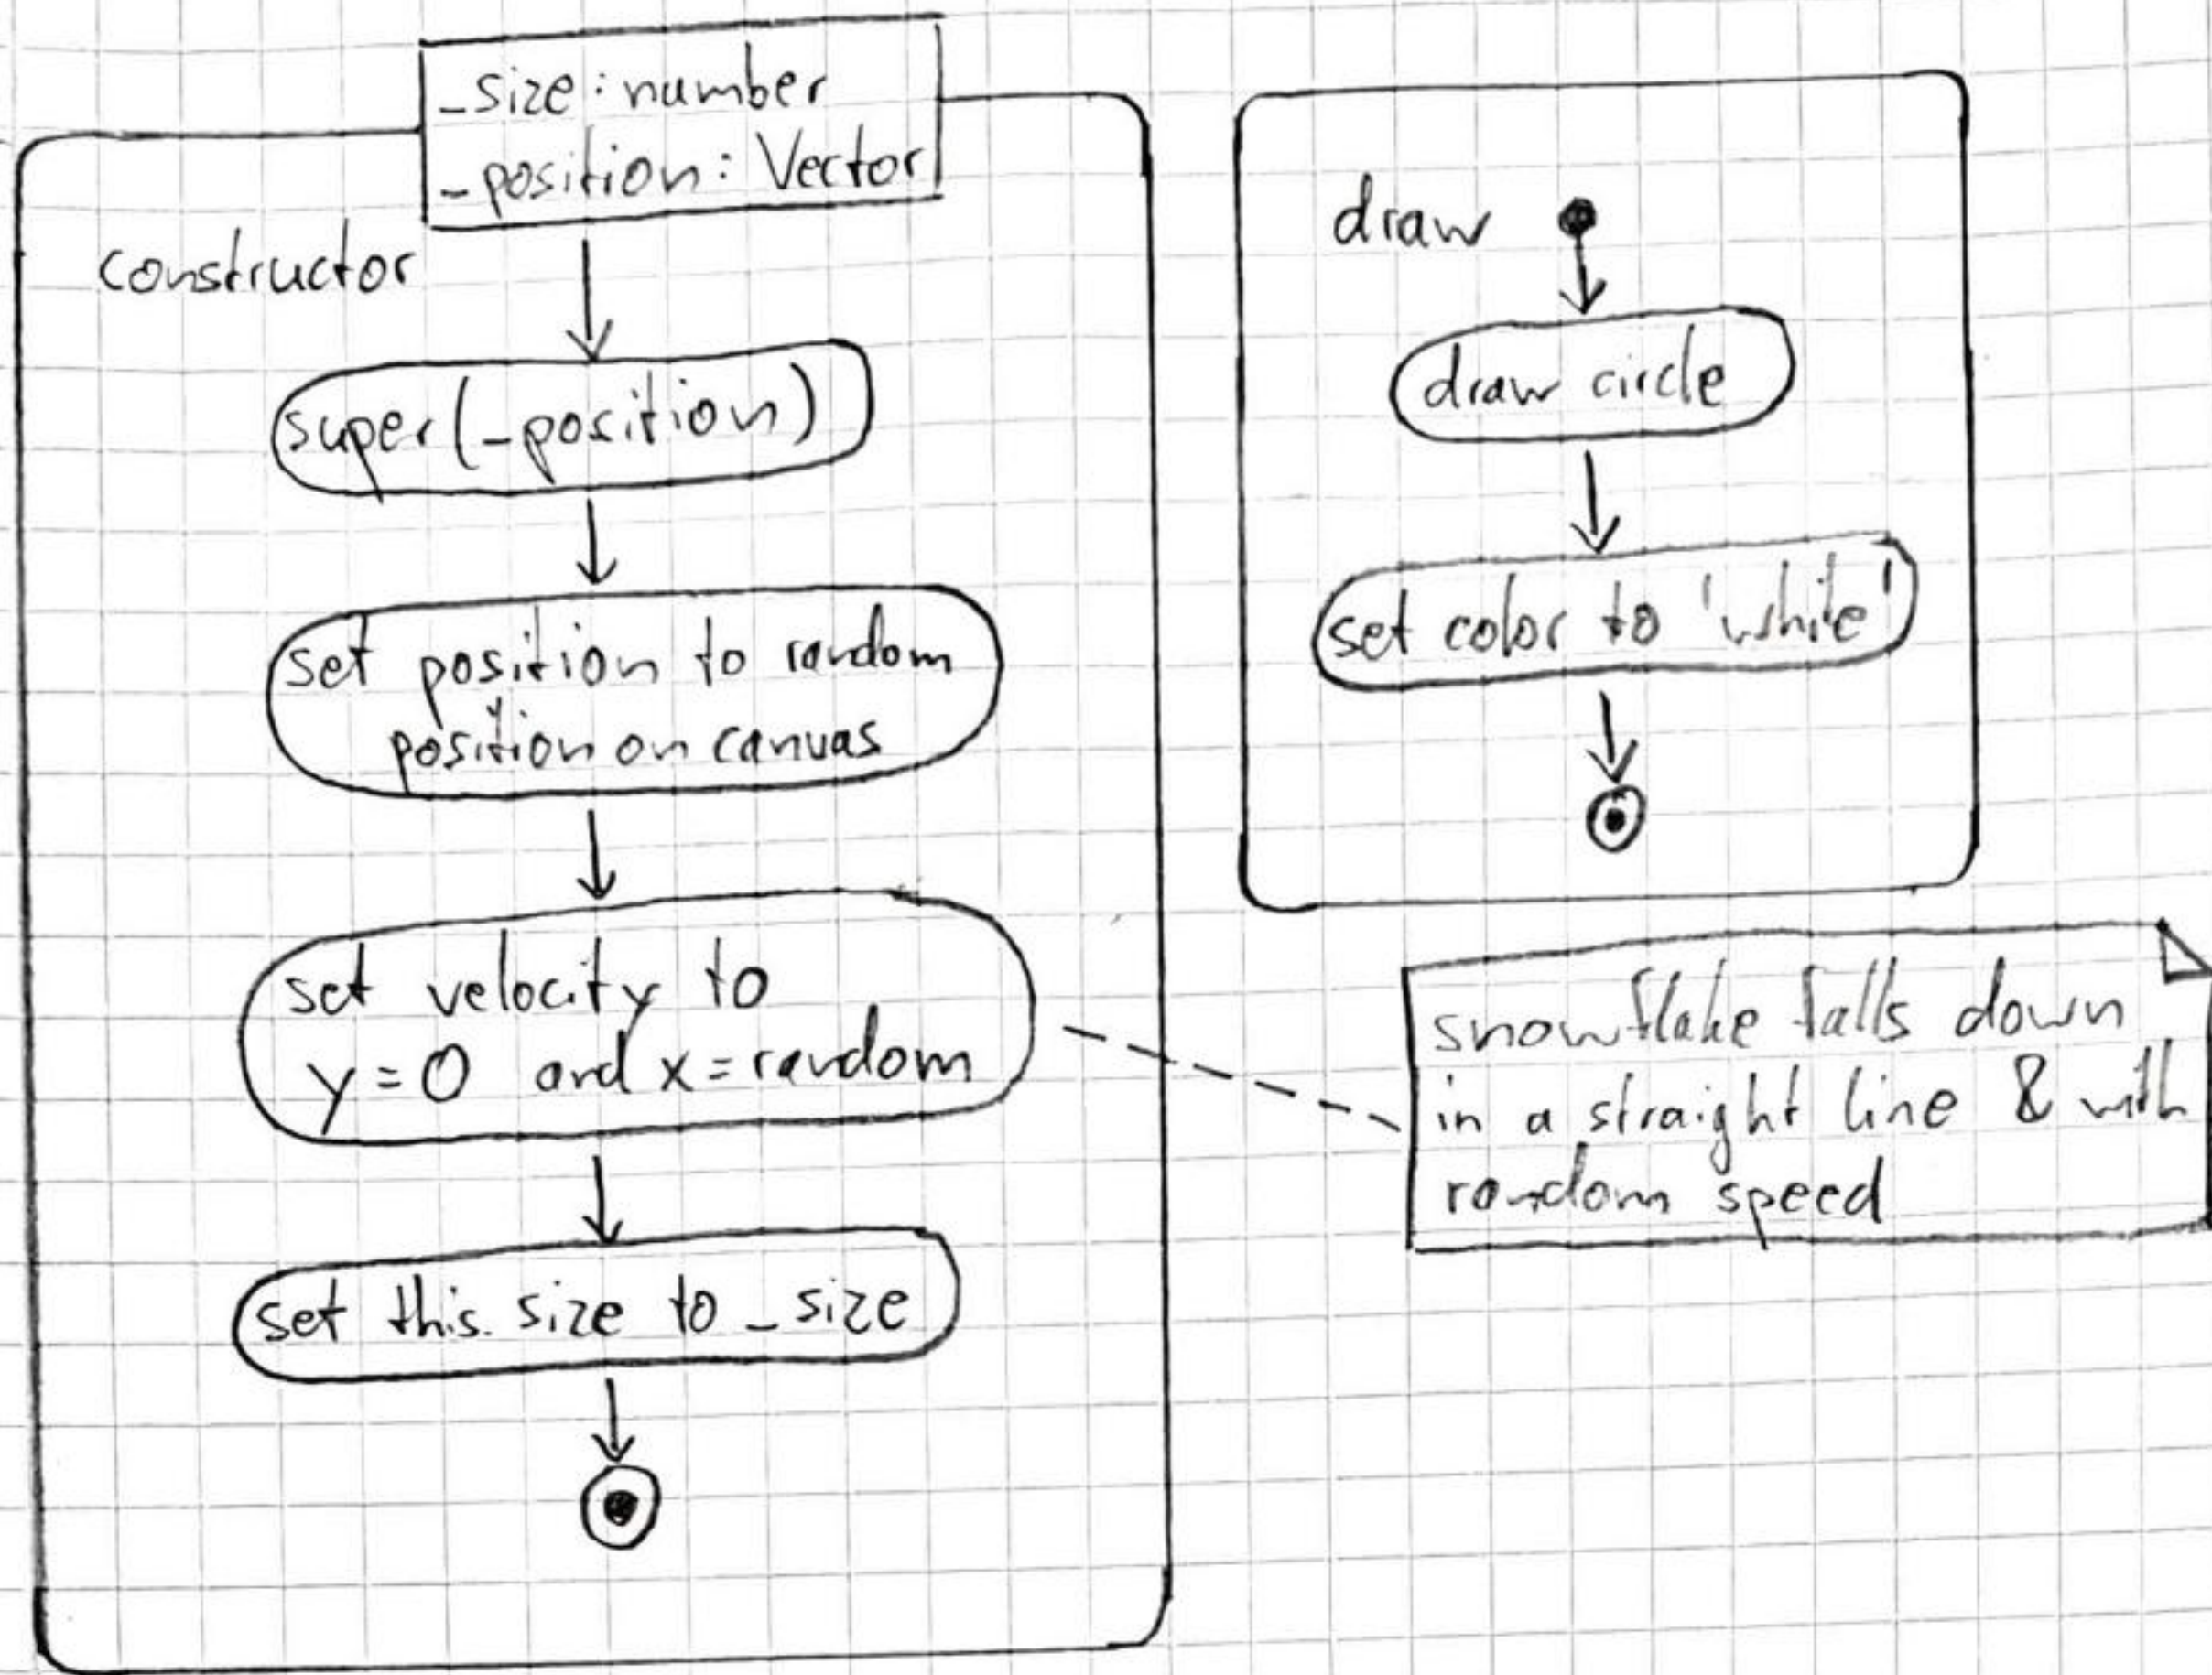 _size: number
_position: Vector
constructor
super(_position)
set position to random
position on canvas
set velocity to
y=0 and x=random
set this.size to _size
draw
draw circle
set color to 'white'
snowflake falls down
in a straight line & with
random speed